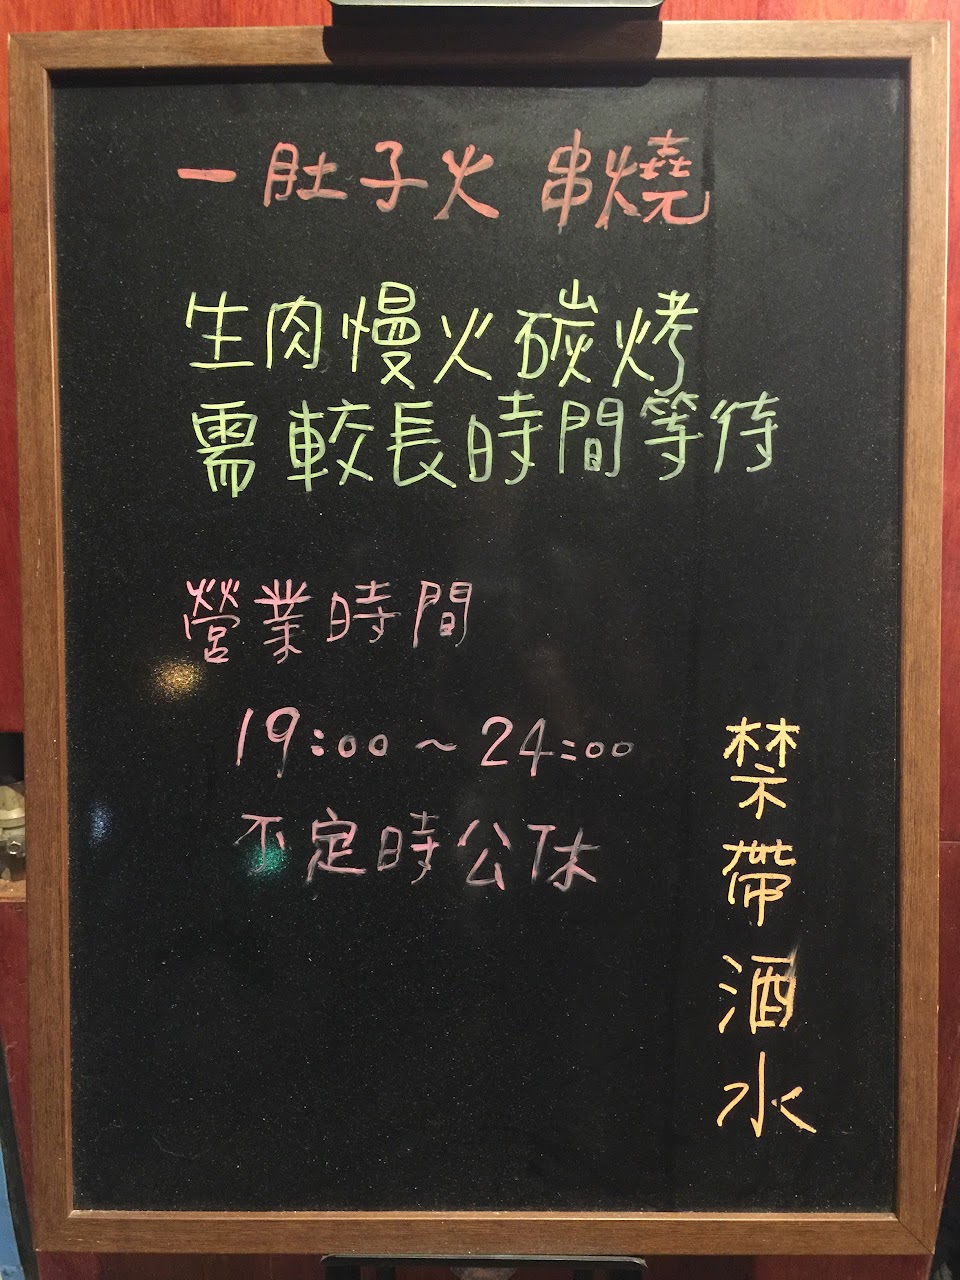 一肚子火 串燒
生肉慢火碳烤
需較長時間等待
營業時間
19:00~24:00
不定時公休
禁帶酒水